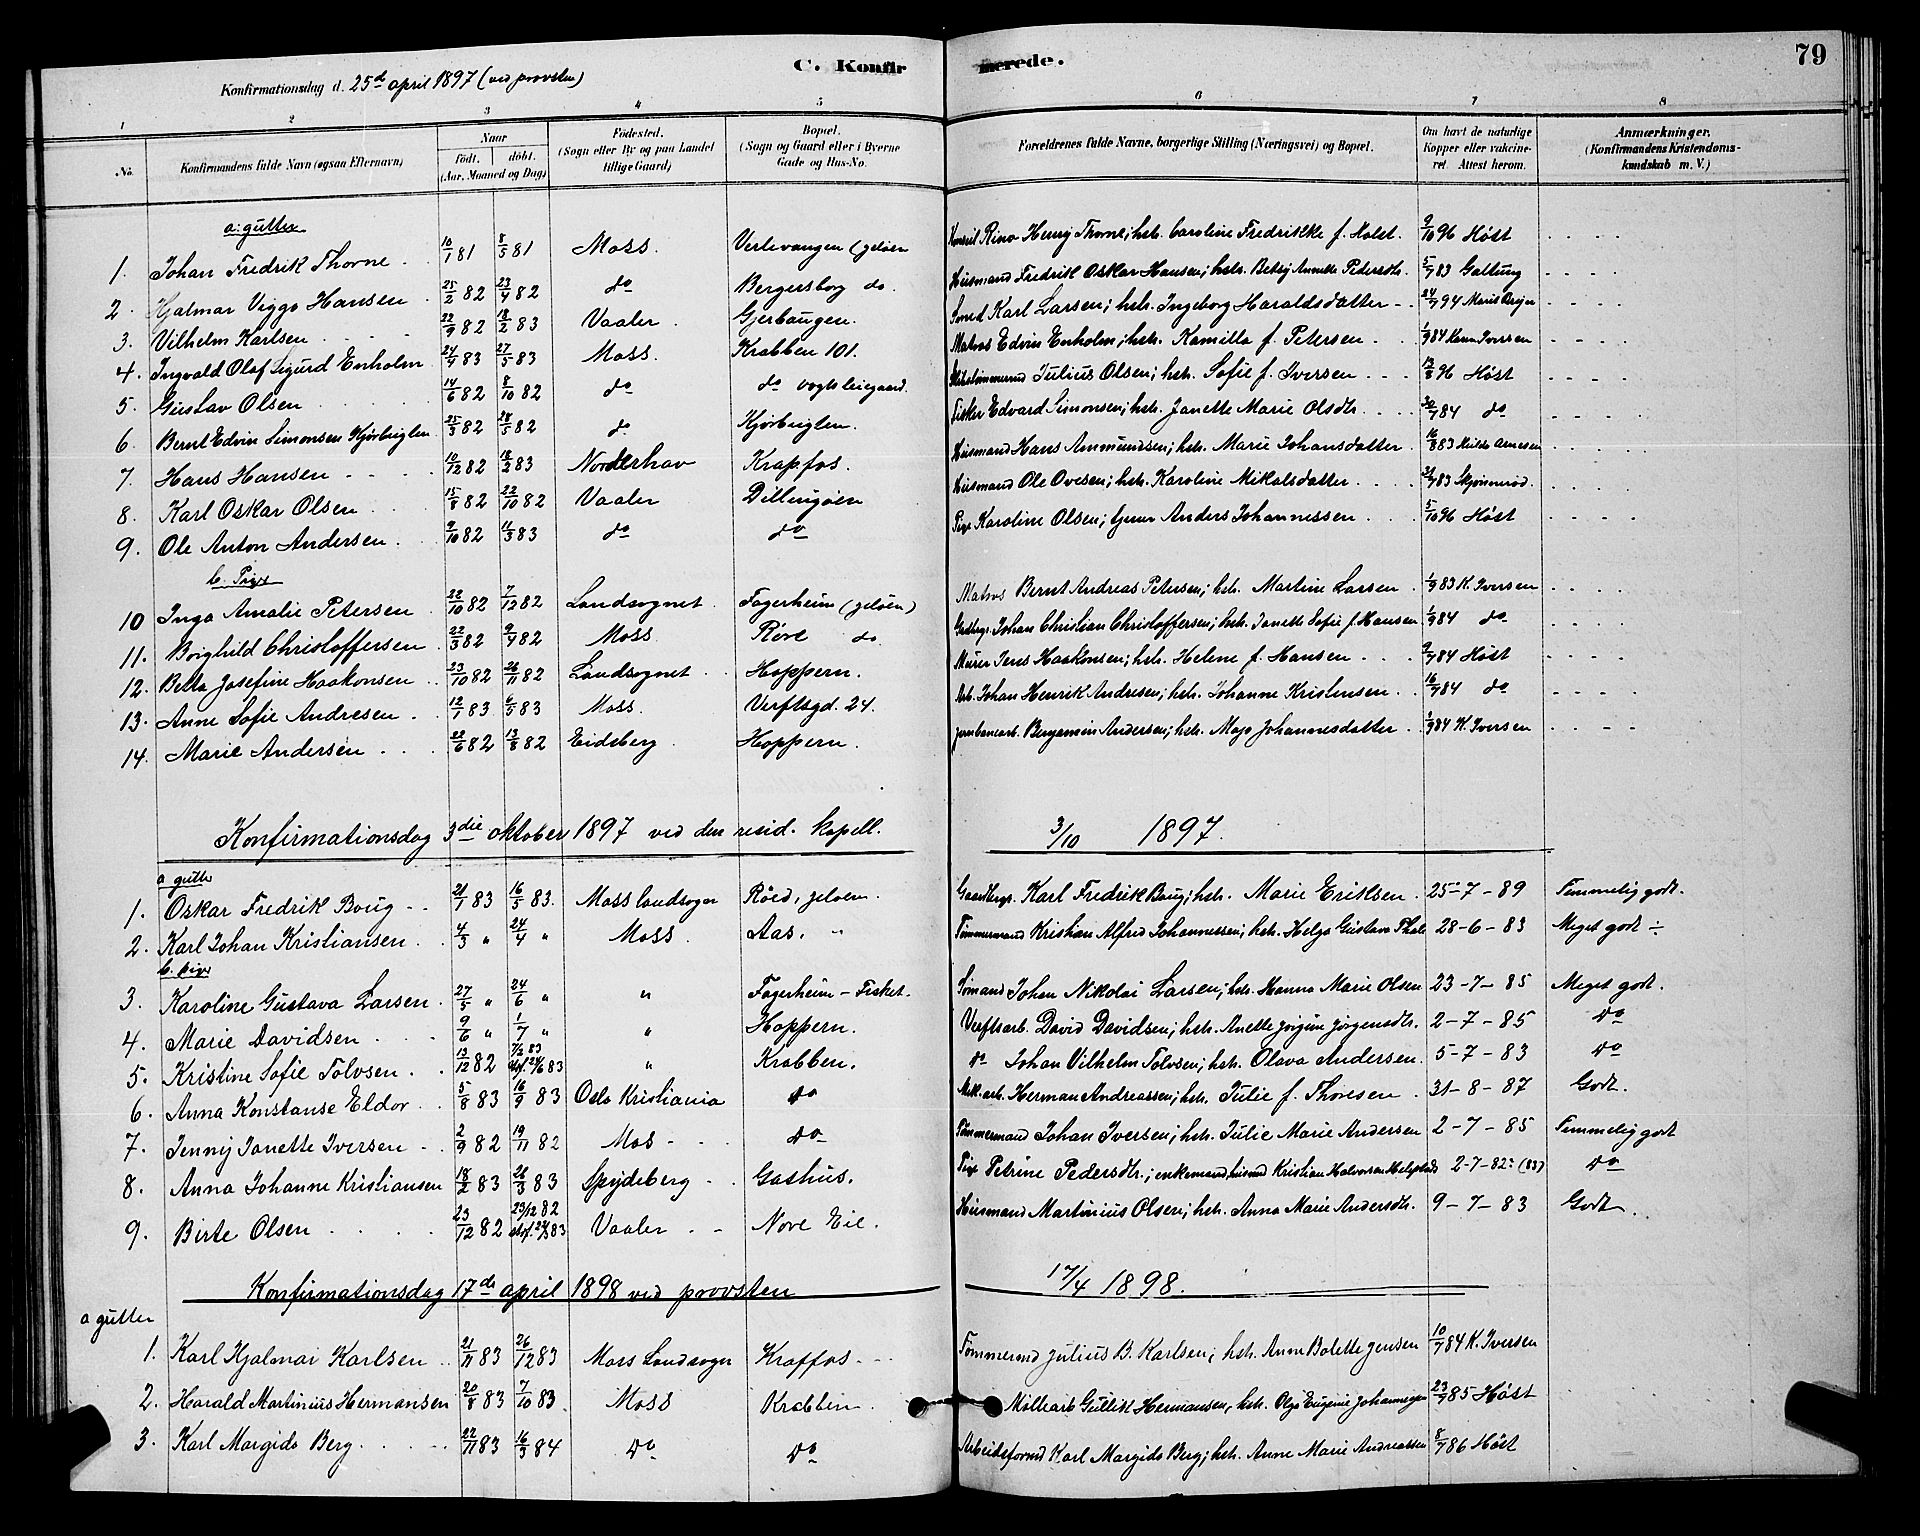 C. Konfirmerede.
79
Konfirmationsdag d. 25de april 1897 (ved provsten)
1 2 3 4 5 6 7 8
No. Konfirmandens fulde Navn (ogsaa Efternavn) Naar født. døbt. (Aar, Maaned og Dag) Fødested. (Sogn eller By og paa Landet tillige Gaard) Bopæl. (Sogn og Gaard eller i Byerne Gade og Hus-No. Forældrenes fulde Navne, borgerlige Stilling (Næringsvei) og Bopæl. Om havt de naturlige Kopper eller vakcineret. Attest herom. Anmærkninger. (Konfirmandens Kristendomskundskab m. V.)
a: gutter
1. Johan Fredrik Thorne 10/1 81 8/5 81 Moss. Verlevangen (jeløen Konsul Rino Henry Thorne; hstr. Caroline Fredrikke f. Holst. 9/10 96 Høst
2. Hjalmar Viggo Hansen 25/2 82 23/4 82 do Bergersborg do. Husmand Fredrik Oskar Hansen; hstr. Betsy Annette Pedersdtr. 5/7 83 Galtung
3. Vilhelm Karlsen 22/9 82 18/2 83 Vaaler Gjerhaugen. Smed Karl Larsen; hstr. Ingeborg Haraldsdatter 24/7 94
4. Ingvald Olaf Sigurd Enholm 24/4 83 27/5 83 Moss. Krabben 101. Matros Edvin Enholm; hstr. Kamilla f. Petersen 1/9 84 Iversen
5. Gustav Olsen 14/6 82 8/10 82 do do vogts leiegaard Julius Olsen; hstr. Sofie f. Iversen 96 Høst
6. Bernt Edvin Simonsen Kjørbuglen 25/3 82 28/5 82 do Kjørbuglen. Fisker Edvard Simonsen; hstr. Janette Marie Olsdtr. 30/7 84 do
7. Hans Hansen 10/12 82 18/2 83 Nordenhav Krapfos. Husmand Hans Ammundsen; hstr. Marie Johansdatter 16/8 83
8. Karl Oskar Olsen 15/8 82 22/10 82 Vaaler Dillingøen Husmand Ole Ovesen; hstr. Karoline Mikalsdatter 83 Skjønnerød.
9. Ole Anton Andersen 9/10 82 11/3 83 do do Pige Karoline Olsen; Anders Johannessen 5/10 96 Høst
b. Piger
10 Inga Amalie Petersen 22/10 82 7/12 82 Landsognet Fagerheim (jeløen) Matros Bernt Andreas Petersen; hstr. Martine Larsen 1/9 83 K. Iversen
11. Borghild Christoffersen 22/3 82 9/4 82 Moss Røre do Gadbgr. Johan Christian Christoffersen; hstr. Janette Sofie f. Hansen 1/9 84 do
12. Betta Josefine Haakonsen 23/10 82 26/11 82 Landsognet Hoppern. Murer Jens Haakonsen; hstr. Helene f. Hansen 9/7 84 Høst
13. Anne Sofie Andresen 12/1 83 6/5 83 Moss. Verftsgd. 24. Arb. Johan Henrik Andresen; hstr. Johanne Kristensen 16/7 84 do
14. Marie Andersen 22/6 82 13/8 82 Eidsberg Hoppern. Jernbanearb. Benjamin Andersen; hstr. Maja Johannesdatter 1/9 84 K. Iversen
Konfirmationsdag 3die oktober 1897 ved den resid. kapell. 3/10 1897.
a gutte
1. Oskar Fredrik Boug 21/1 83 16/5 83. Moss landsogn Røed, jeløen. Gaardbrgr. Karl Fredrik Boug; hstr. Marie Eriksen 25-7-89 Temmelig godt.
2. Karl Johan Kristiansen 4/3 " 24/4 " Moss. Aas. " Tømmermand Kristian Alfred Johannessen; hstr. Helga Gustava 28-6-83 Meget godt ÷
b. piger
3. Karoline Gustava Larsen 27/5 " 24/6 " " Fagerheim - Fisket. Sømand Johan Nikolai Larsen; hstr. Hanna Marie Olsen 23-7-85 Meget godt.
4. Marie Davidsen 9/6 " 1/7 " " Hoppern. Verftsarb. David Davidsen; hstr. Anette Jørgine Jørgensdtr. 2-7-85 do
5. Kristine Sofie Tolvsen 13/12 82 7/2 83 " Krabben. do Johan Vilhelm Tolvsen; hstr. Olava Andersen 5-7-83 do
6. Anna Konstanse Eldor 5/8 83 16/9 83 Oslo Kristiania do Mek. arb. Herman Andreassen; hstr. Julie f. Thoresen 31-8-87 Godt.
7. Jenny Janette Iversen 2/9 82 19/11 82 Mos do Tømmermand Johan Iversen; hstr. Julie Marie Andersen 2-7-85 Temmelig godt
8. Anna Johanne Kristiansen 18/2 83 26/3 83 Spydeberg Gashus. Pige Petrine Pedersdtr.; enkemand, husmd Kristian Halvorsen 2-7-82? (83) do
9. Birte Olsen 23/12 82 29/12 82 Vaaler Nore Eie. Husmand Martinius Olsen; hstr. Anna Marie Andersdtr. 9-7-83 Godt.
Konfirmationsdag 17de april 1898 ved provsten 17/4 1898.
a gutter
1. Karl Hjalmar Karlsen 21/11 83 26/12 83 Moss Landsogn Krapfos Tømmermd Julius B. Karlsen; hstr. Anne Bolette Jensen 10/7 84 K. Iversen
2. Harald Martinius Hermansen 20/8 83 7/10 83. Moss Krabben Møllearb Gullik Hermansen, hstr. Olga Eugenie Johannessen 23/7 85 Høst
3. Karl Margido Berg 22/11 83 16/3 84 do do Arbeidsformd Karl Margido Berg; hstr. Anne Marie Andreassen 8/7 86 Høst